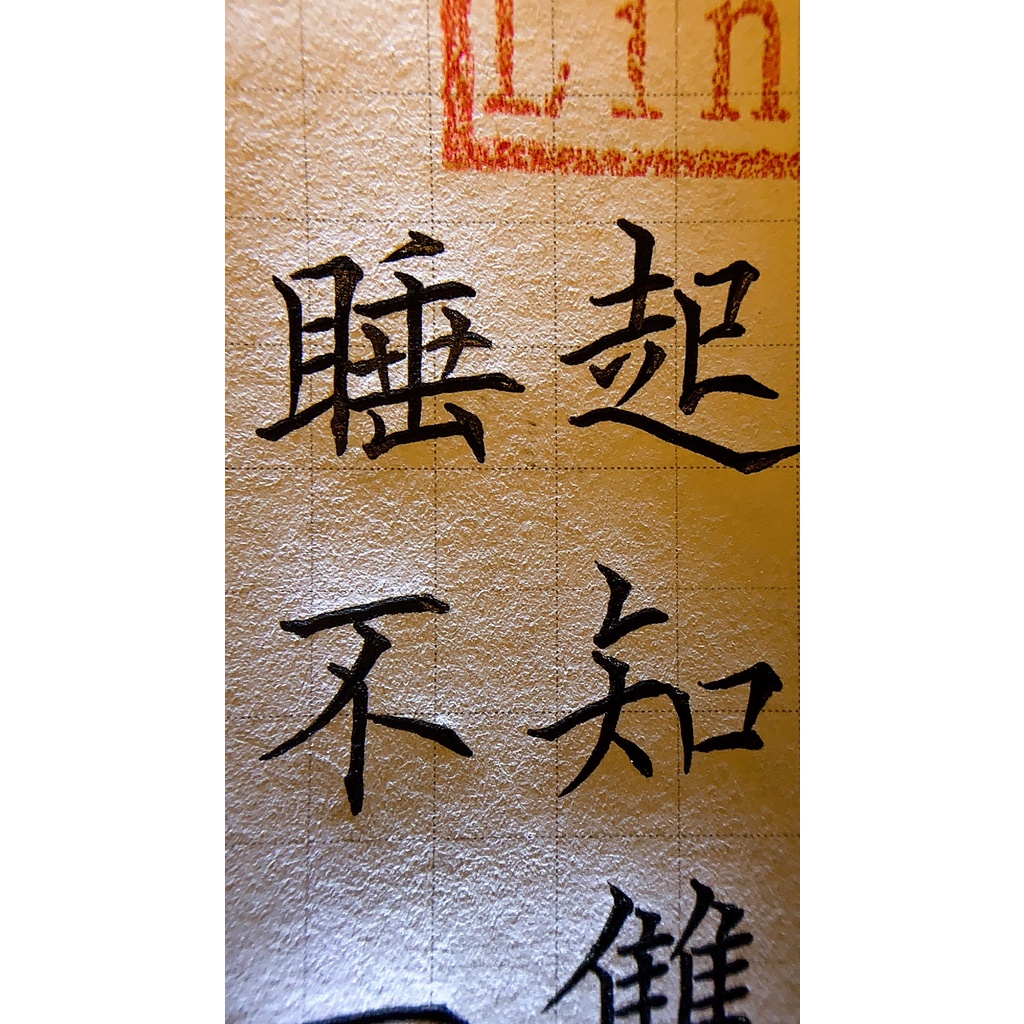 Lin
睡起
不知